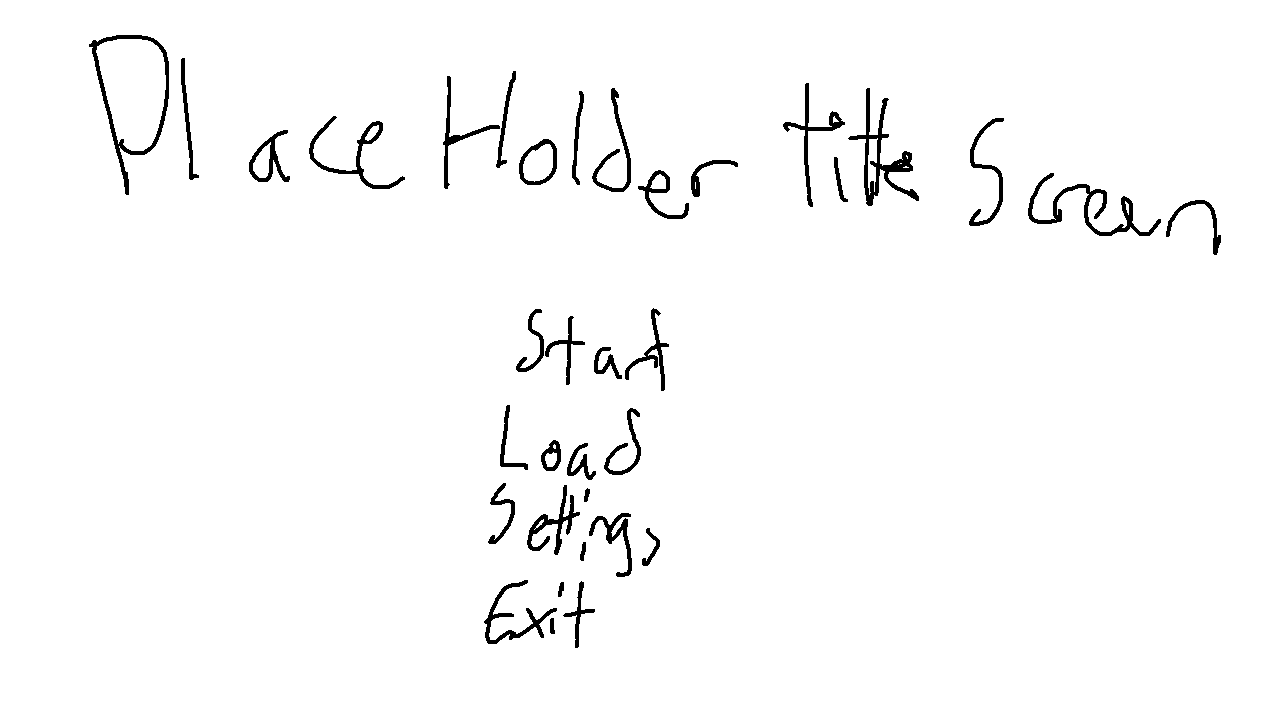 PlaceHolder title Screen
Start
Load
Settings
Exit